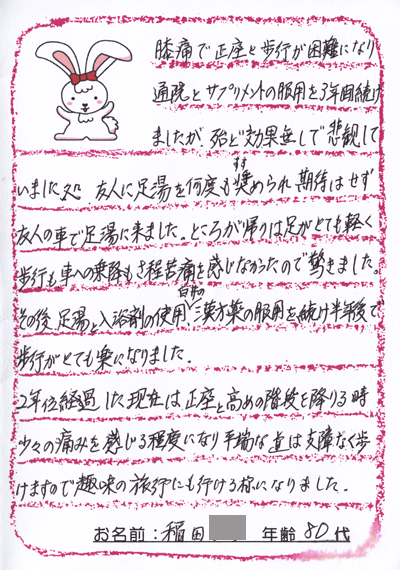 膝痛で正座と歩行が困難になり
通院とサプリメントの服用を3年間続け
ましたが、殆ど効果無しで悲観して
いました処、友人に足湯を何度も奨められ期待はせず
すす
友人の車で足湯に来ました。ところが帰りは足がとても軽く
歩行も車への乗降もさ程苦痛を感じなかったので驚きました。
その後、足湯と入浴剤の使用、漢方薬の服用を続け半年後で
歩行がとても楽になりました。
2年位経過した現在は正座と高めの階段を降りる時
少々の痛みを感じる程度になり手端な道は支障なく歩
けますので趣味の旅行にも行ける様になりました。
お名前：稲田 年齢 80代